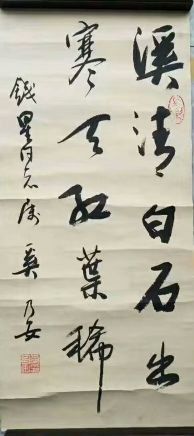 溪清白石出
寒天红葉稀
錢星同志属 奚乃